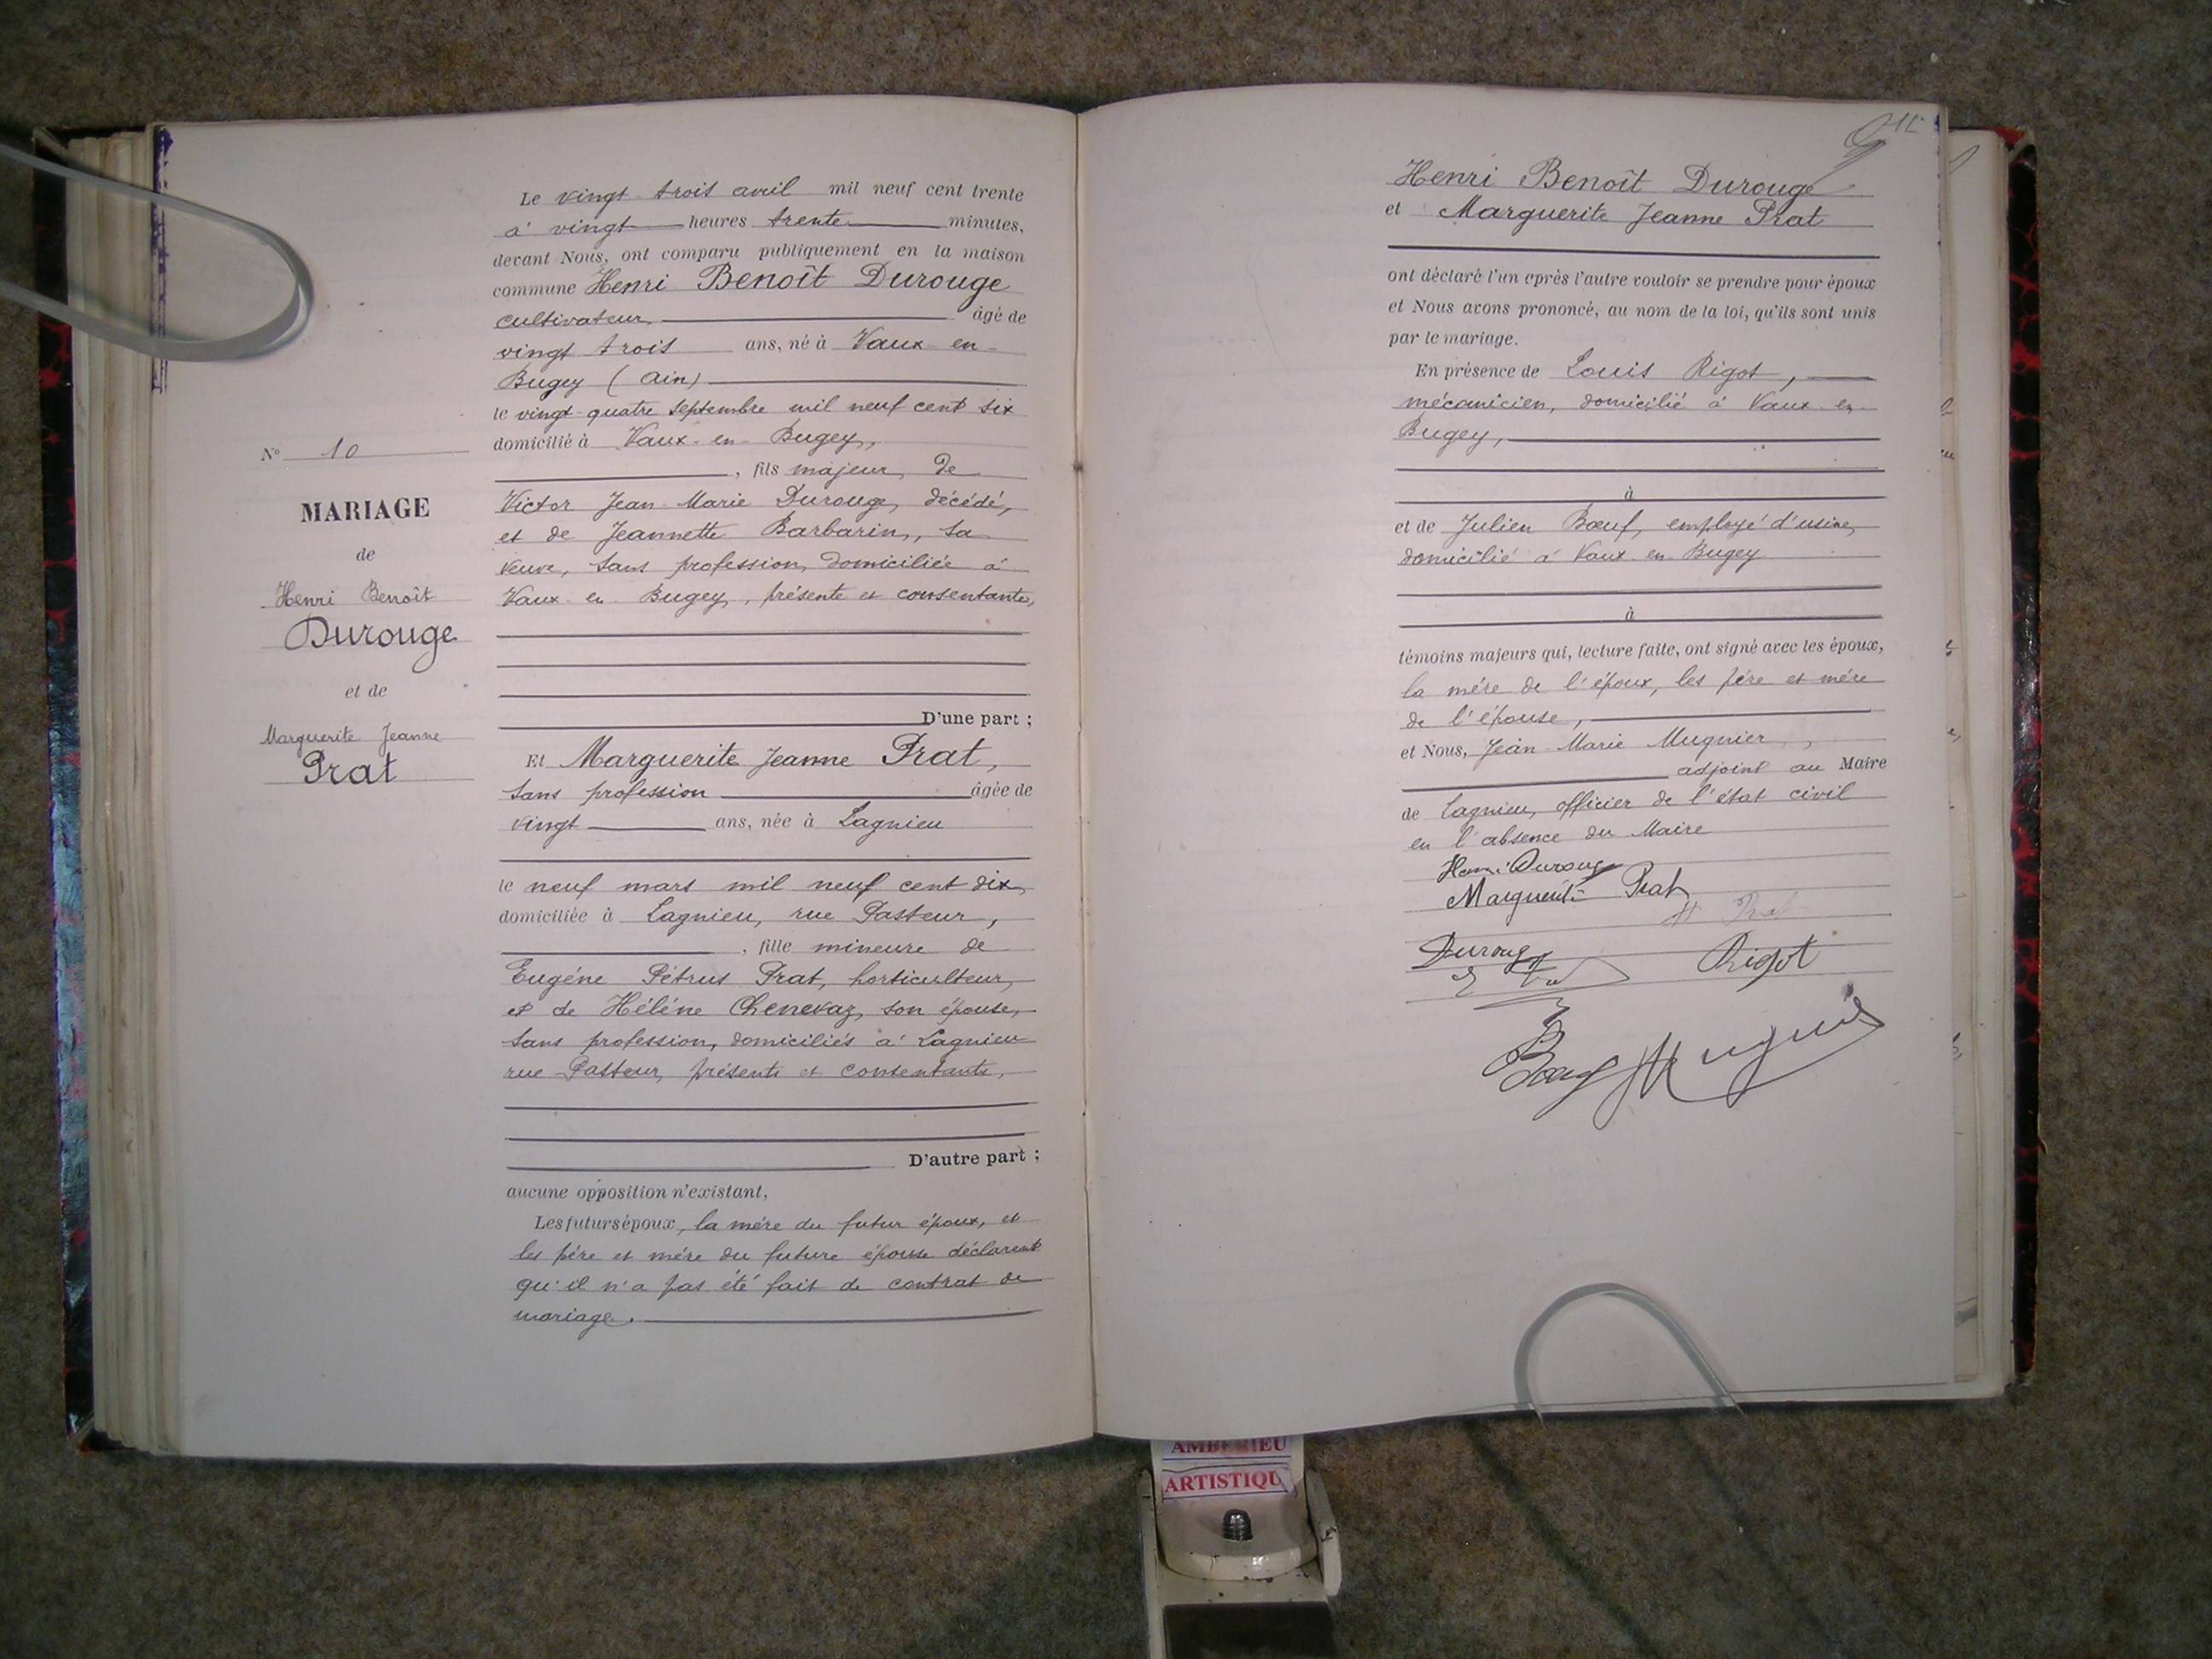 N° 10
MARIAGE
de
Henri Benoît
Durouge
et de
Marguerite Jeanne
Prat
Le vingt trois avril mil neuf cent trente
à vingt heures trente minutes,
devant Nous, ont comparu publiquement en la maison
commune Henri Benoît Durouge
cultivateur, âgé de
vingt trois ans, né à Vaux-en-
Bugey (Ain)
le vingt-quatre septembre mil neuf cent six
domicilié à Vaux-en-Bugey,
, fils majeur de
Victor Jean-Marie Durouge, décédé,
et de Jeannette Barbarin, sa
veuve, sans profession, domiciliée à
Vaux-en-Bugey, présente et consentante,
D'une part ;
Et Marguerite Jeanne Prat,
sans profession âgée de
vingt ans, née à Lagnieu
le neuf mars mil neuf cent dix,
domiciliée à Lagnieu, rue Pasteur,
, fille mineure de
Eugène Pétrus Prat, horticulteur,
et de Hélène Chenevaz, son épouse,
sans profession, domiciliés à Lagnieu
rue Pasteur, présents et consentants,
D'autre part ;
aucune opposition n'existant,
Les futurs époux, la mère du futur époux, et
les père et mère du future épouse déclarent
qu'il n'a pas été fait de contrat de
mariage.
Henri Benoît Durouge
et Marguerite Jeanne Prat
ont déclaré l'un après l'autre vouloir se prendre pour époux
et Nous avons prononcé, au nom de la loi, qu'ils sont unis
par le mariage.
En présence de Louis Rigot,
mécanicien, domicilié à Vaux-en-
Bugey,
à
et de Julien Bœuf, employé d'usine,
domicilié à Vaux-en-Bugey
à
témoins majeurs qui, lecture faite, ont signé avec les époux,
la mère de l'époux, les père et mère
de l'épouse,
et Nous, Jean Marie Mugnier,
adjoint au Maire
de Lagnieu, officier de l'état civil
en l'absence du Maire
Henri Durouge
Marguerite Prat
H Prat
Durouge
Rigot
Bœuf Mugnier
AMBERIEU
ARTISTIQU